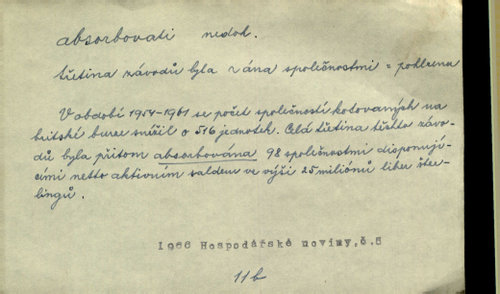 absorbovati nedok.
třetina závodů byla ána společnostmi = pohlcena
V období 1954-1961 se počet společností kotovaných na
britské burse snížil o 516 jednotek. Celá třetina těchto závo-
dů byla přitom absorbována 98 společnostmi disponují-
cími netto aktivním saldem ve výši 25 miliónů liber šter-
lingů.
1966 Hospodářské noviny, č.5
11b